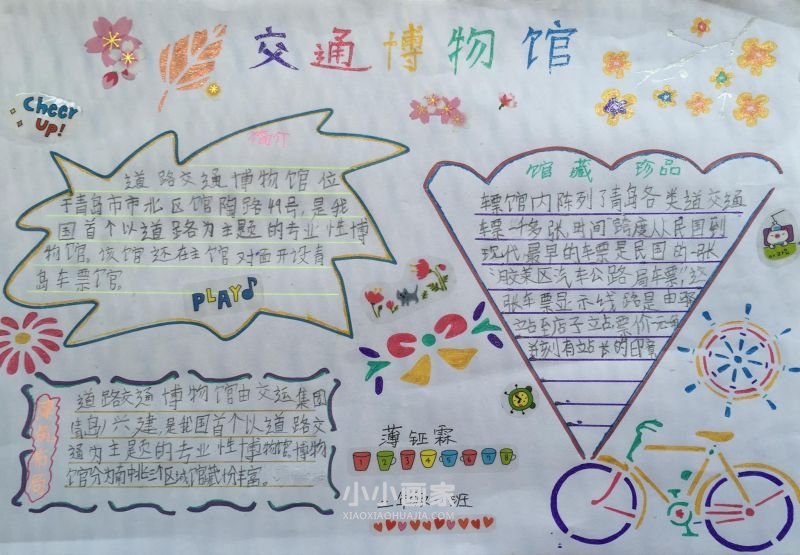 交通博物馆
Cheer
UP!
简介
道路交通博物馆位
于青岛市市北区馆陶路49号,是我
国首个以道路为主题的专业性博
物馆。该馆还在主馆对面开设青
岛车票馆。
PLAY
馆藏珍品
车票馆内陈列了青岛各类道交通
车票千多张,时间跨度从民国到
现代最早的车票是民国的一张
"胶莱区汽车公路局车票",这
张车票显示线路是由
站至店子立站票价元
刻有站长的印章
道路交通博物馆由交运集团
(青岛)兴建,是我国首个以道路交
通为主题的专业性博物馆,博物
馆分为南中北三个区域馆藏份丰富。
薄钲霖
1 2 3 4 5 6 7 8
二年级 班
小小画家
XIAOXIAOHUAJIA.COM